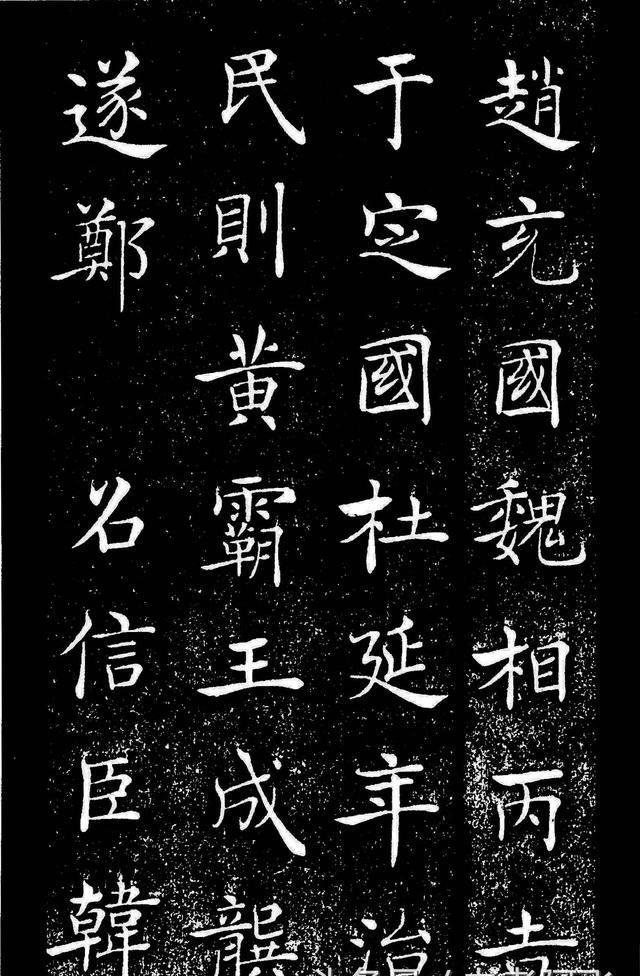 趙充國魏相丙吉
于定國杜延年治
民則黃霸王成龔
遂鄭召信臣韓